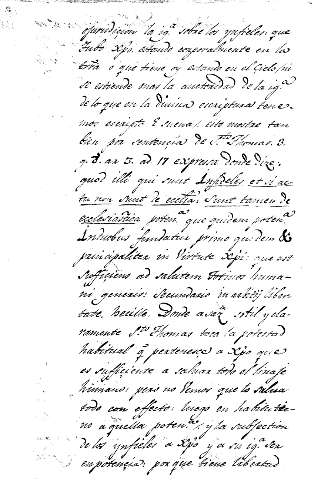 jurisdicion la ig.ª sobre los ynfieles, que
tubo Xpo. estando corporalmente en la
trrã o que tiene oy estando en el Cielo, ni
se estiende mas la auctoridad de la ig.ª
de lo que en la divina escriptura tene
mos escripto. E suena, esto mostro tan
bien por sentencia de S.to Thomas. 3.
q. 8. ar. 3. ad 1 expresa donde dize.
quod illi qui sunt Infideles et si ac
tu non sunt de ecclia. Sunt tamen de
ecclesiastica poten.ª que quidem poten.ª
Induobus fundatur primo quidem &
principaliter in Virtute Xpi; que est
sufficiens ad salutem totius huma
ni generis: Secundario in arbitrij liber
tate, hecille. Donde sotil y cla
ramente S.to Thomas toca la potestad
habitual q̃ pertenece a Xpo que
es sufficiente a saluar todo el linaje
humano; pero no Vemos que lo salua
todo con effecto; luego en habito tie
ne aquella poten.ª y la subjection
de los ynfieles a Xpo y a su ig.ª sera
en potencia; porque tiene libertad